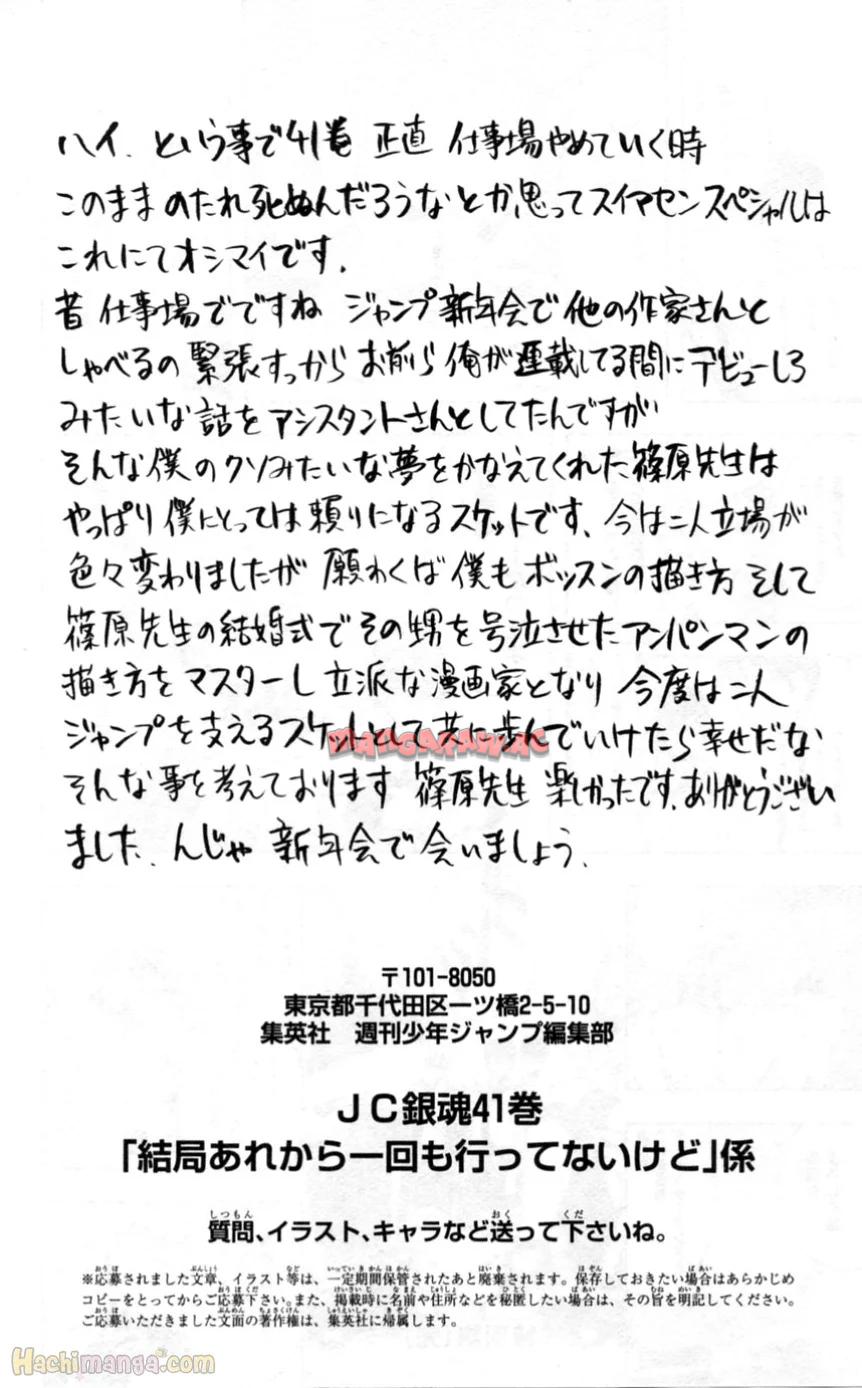 ハイ、という事で41巻 正直 仕事場やめていく時
このままのたれ死ぬんだろうなとか思ってスイマセンスペシャルは
これにてオシマイです.
昔 仕事場でですね ジャンプ新年会で他の作家さんと
しゃべるの緊張すっからお前ら俺が連載してる間にデビューしろ
みたいな話をアシスタントさんとしてたんですが
そんな僕のクソみたいな夢をかなえてくれた篠原先生は
やっぱり僕にとっては頼りになるスケットです、今は二人立場が
色々変わりましたが 願わくば僕もボッスンの描き方 そして
篠原先生の結婚式でその甥を号泣させたアンパンマンの
描き方をマスターし立派な漫画家となり 今度は二人
ジャンプを支えるスケットとして共に歩んでいけたら幸せだな
MANGARAWAC
そんな事を考えております 篠原先生 楽しかったです、ありがとうござい
ました、んじゃ 新年会で会いましょう.
〒101-8050
東京都千代田区一ツ橋2-5-10
集英社 週刊少年ジャンプ編集部
JC銀魂41巻
「結局あれから一回も行ってないけど」係
しつもん おく くだ
質問、イラスト、キャラなど送って下さいね。
おうぼ ぶんしょう など いっていきかんほかん はいき ほぞん ばあい
※応募されました文章、イラスト等は、一定期間保管されたあと廃棄されます。保存しておきたい場合はあらかじめ
おうぼくだ けいさいじ なまえ じゅうしょ ひとく ばあい むね めいき
コピーをとってからご応募下さい。また、掲載時に名前や住所などを秘匿したい場合は、その旨を明記してください。
おうぼ ぶんめん ちょさくけん しゅうえいしゃ きぞく
ご応募いただきました文面の著作権は、集英社に帰属します。
Hachimanga.com